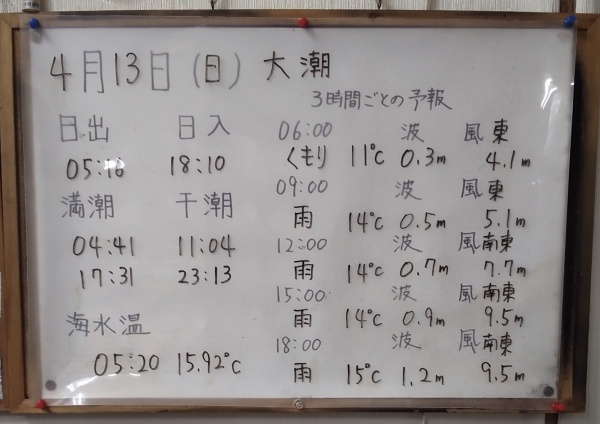 4月13日(日) 大潮
3時間ごとの予報
日出 日入
05:16 18:10
満潮 干潮
04:41 11:04
17:31 23:13
海水温
05:20 15.92℃
06:00 波 風 東
くもり 11℃ 0.3m 4.1m
09:00 波 風 東
雨 14℃ 0.5m 5.1m
12:00 波 風 南東
雨 14℃ 0.7m 7.7m
15:00 波 風 南東
雨 14℃ 0.9m 9.5m
18:00 波 風 南東
雨 15℃ 1.2m 9.5m